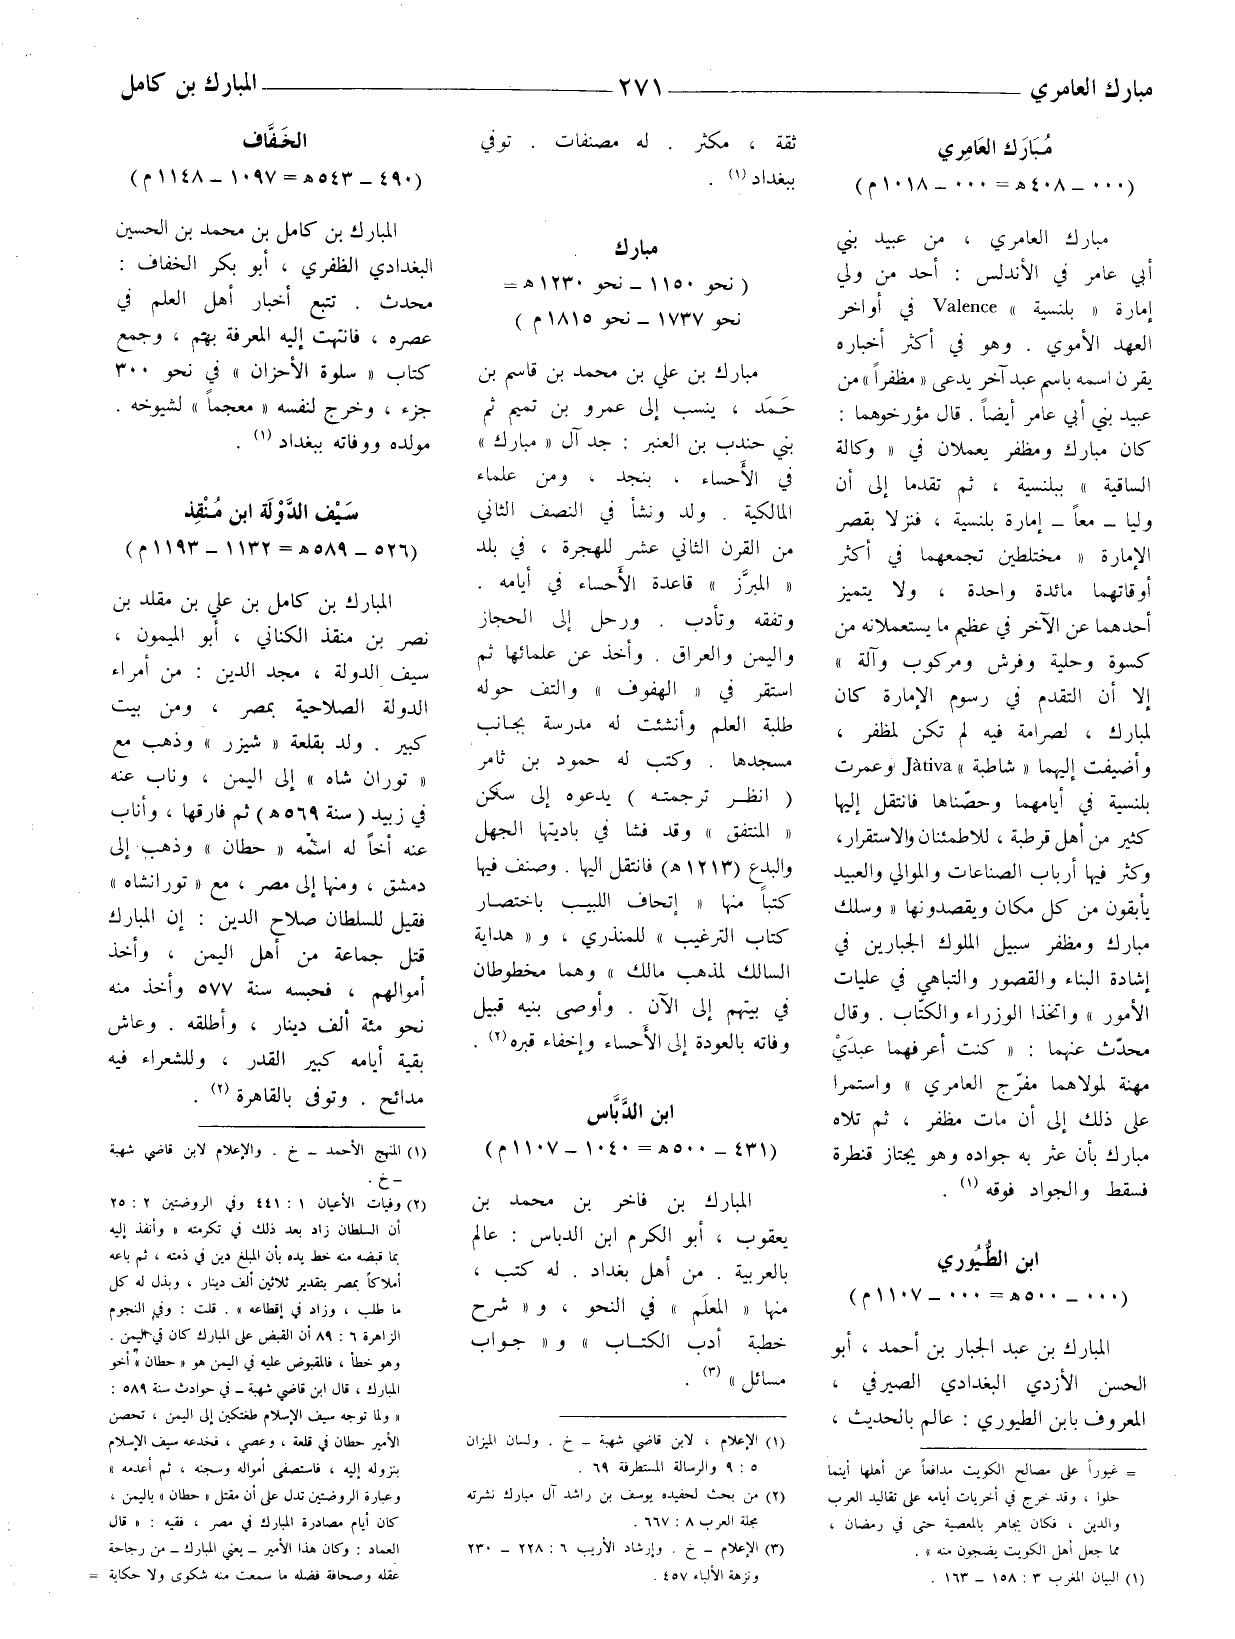 مبارك العامري
٢٧١
المبارك بن كامل
مُبَارَك العَامِري
(٠٠٠ ــ ٤٠٨هـ = ٠٠٠ ــ ١٠١٨م)
مبارك العامري ، من عبيد بني
أبي عامر في الأندلس : أحد من ولي
إمارة « بلنسية » Valence في أواخر
العهد الأموي . وهو في أكثر أخباره
يقرن اسمه باسم عبد آخر يدعى « مظفراً » من
عبيد بني أبي عامر أيضاً . قال مؤرخوهما :
كان مبارك ومظفر يعملان في « وكالة
الساقية » ببلنسية ، ثم تقدما إلى أن
وليا ــ معاً ــ إمارة بلنسية ، فنزلا بقصر
الإمارة « مختلطين تجمعهما في أكثر
أوقاتهما مائدة واحدة ، ولا يتميز
أحدهما عن الآخر في عظيم ما يستعملانه من
كسوة وحلية وفرش ومركوب وآلة »
إلا أن التقدم في رسوم الإمارة كان
لمبارك ، لصرامة فيه لم تكن لمظفر ،
وأضيفت إليهما « شاطبة » Jàtiva وعمرت
بلنسية في أيامهما وحصّناها فانتقل إليها
كثير من أهل قرطبة ، للاطمئنان والاستقرار،
وكثر فيها أرباب الصناعات والموالي والعبيد
يأبقون من كل مكان ويقصدونها « وسلك
مبارك ومظفر سبيل الملوك الجبارين في
إشادة البناء والقصور والتباهي في عليات
الأمور » واتخذا الوزراء والكتّاب . وقال
محدّث عنهما : « كنت أعرفهما عبدَيْ
مهنة لمولاهما مفرّج العامري » واستمرا
على ذلك إلى أن مات مظفر ، ثم تلاه
مبارك بأن عثر به جواده وهو يجتاز قنطرة
فسقط والجواد فوقه (١) .
ابن الطُّيُوري
(٠٠٠ ــ ٥٠٠هـ = ٠٠٠ ــ ١١٠٧م)
المبارك بن عبد الجبار بن أحمد ، أبو
الحسن الأزدي البغدادي الصيرفي ،
المعروف بابن الطيوري : عالم بالحديث ،
= غيوراً على مصالح الكويت مدافعاً عن أهلها أينما
حلوا ، وقد خرج في أخريات أيامه على تقاليد العرب
والدين ، فكان يجاهر بالمعصية حتى في رمضان ،
مما جعل أهل الكويت يضجون منه » .
(١) البيان المغرب ٣ : ١٥٨ ــ ١٦٣ .
ثقة ، مكثر . له مصنفات . توفي
ببغداد (١) .
مبارك
( نحو ١١٥٠ ــ نحو ١٢٣٠ هـ =
نحو ١٧٣٧ ــ نحو ١٨١٥م )
مبارك بن علي بن محمد بن قاسم بن
حَمَد ، ينسب إلى عمرو بن تميم ثم
بني حندب بن العنبر : جد آل « مبارك »
في الأحساء ، بنجد ، ومن علماء
المالكية . ولد ونشأ في النصف الثاني
من القرن الثاني عشر للهجرة ، في بلد
« المبرَّز » قاعدة الأحساء في أيامه .
وتفقه وتأدب . ورحل إلى الحجاز
واليمن والعراق . وأخذ عن علمائها ثم
استقر في « الهفوف » والتف حوله
طلبة العلم وأنشئت له مدرسة بجانب
مسجدها . وكتب له حمود بن ثامر
( انظر ترجمته ) يدعوه إلى سكن
« المنتفق » وقد فشا في باديتها الجهل
والبدع (١٢١٣هـ) فانتقل اليها . وصنف فيها
كتباً منها « إتحاف اللبيب باختصار
كتاب الترغيب » للمنذري ، و « هداية
السالك لمذهب مالك » وهما مخطوطان
في بيتهم إلى الآن . وأوصى بنيه قبيل
وفاته بالعودة إلى الأحساء وإخفاء قبره (٢) .
ابن الدَّبَّاس
(٤٣١ ــ ٥٠٠هـ = ١٠٤٠ ــ ١١٠٧م)
المبارك بن فاخر بن محمد بن
يعقوب ، أبو الكرم ابن الدباس : عالم
بالعربية . من أهل بغداد . له كتب ،
منها « المعلَم » في النحو ، و « شرح
خطبة أدب الكتـاب » و « جـواب
مسائل » (٣) .
(١) الإعلام ، لابن قاضي شهبة ــ خ . ولسان الميزان
٥ : ٩ والرسالة المستطرفة ٦٩ .
(٢) من بحث لحفيده يوسف بن راشد آل مبارك نشرته
مجلة العرب ٨ : ٦٦٧ .
(٣) الإعلام ــ خ . وإرشاد الأريب ٦ : ٢٢٨ ــ ٢٣٠
ونزهة الألباء ٤٥٧ .
الخَفَّاف
(٤٩٠ ــ ٥٤٣هـ = ١٠٩٧ ــ ١١٤٨م)
المبارك بن كامل بن محمد بن الحسين
البغدادي الظفري ، أبو بكر الخفاف :
محدث . تتبع أخبار أهل العلم في
عصره ، فانتهت إليه المعرفة بهم ، وجمع
كتاب « سلوة الأحزان » في نحو ٣٠٠
جزء ، وخرج لنفسه « معجماً » لشيوخه .
مولده ووفاته ببغداد (١) .
سَيْف الدَّوْلَة ابن مُنْقِذ
(٥٢٦ ــ ٥٨٩هـ = ١١٣٢ ــ ١١٩٣م)
المبارك بن كامل بن علي بن مقلد بن
نصر بن منقذ الكناني ، أبو الميمون ،
سيف الدولة ، مجد الدين : من أمراء
الدولة الصلاحية بمصر ، ومن بيت
كبير . ولد بقلعة « شيزر » وذهب مع
« توران شاه » إلى اليمن ، وناب عنه
في زبيد ( سنة ٥٦٩هـ ) ثم فارقها ، وأناب
عنه أخاً له اسمّه « حطان » وذهب إلى
دمشق ، ومنها إلى مصر ، مع « تورانشاه »
فقيل للسلطان صلاح الدين : إن المبارك
قتل جماعة من أهل اليمن ، وأخذ
أموالهم ، فحبسه سنة ٥٧٧ وأخذ منه
نحو مئة ألف دينار ، وأطلقه . وعاش
بقية أيامه كبير القدر ، وللشعراء فيه
مدائح . وتوفى بالقاهرة (٢) .
(١) المنهج الأحمد ــ خ . والإعلام لابن قاضي شهبة
ــ خ .
(٢) وفيات الأعيان ١ : ٤٤١ وفي الروضتين ٢ : ٢٥
أن السلطان زاد بعد ذلك في تكرمته « وأنفذ إليه
بما قبضه منه خط يده بأن المبلغ دين في ذمته ، ثم باعه
أملاكاً بمصر بتقدير ثلاثين ألف دينار ، وبذل له كل
ما طلب ، وزاد في إقطاعه » . قلت : وفي النجوم
الزاهرة ٦ : ٨٩ أن القبض على المبارك كان في اليمن .
وهو خطأ ، فالمقبوض عليه في اليمن هو « حطان » أخو
المبارك ، قال ابن قاضي شهبة ــ في حوادث سنة ٥٨٩ :
« ولما توجه سيف الإسلام طغتكين إلى اليمن ، تحصن
الأمير حطان في قلعة ، وعصي ، فخدعه سيف الإسلام
بنزوله إليه ، فاستصفى أمواله وسجنه ، ثم أعدمه »
وعبارة الروضتين تدل على أن مقتل « حطان » باليمن ،
كان أيام مصادرة المبارك في مصر ، ففيه : « قال
العماد : وكان هذا الأمير ــ يعني المبارك ــ من رجاحة
عقله وصحافة فضله ما سمعت منه شكوى ولا حكاية =